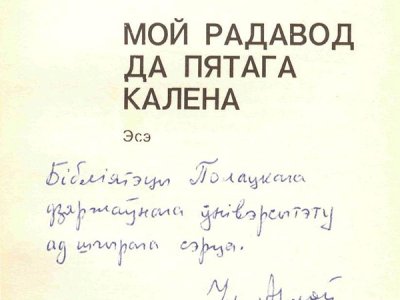 МОЙ РАДАВОД
ДА ПЯТАГА
КАЛЕНА
Эсэ
Бібліятэцы Полацкага
дзяржаўнага ўніверсітэту
ад шчырага сэрца.